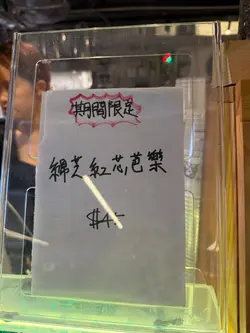 期間限定
綿芝紅芯芭樂
$4.-